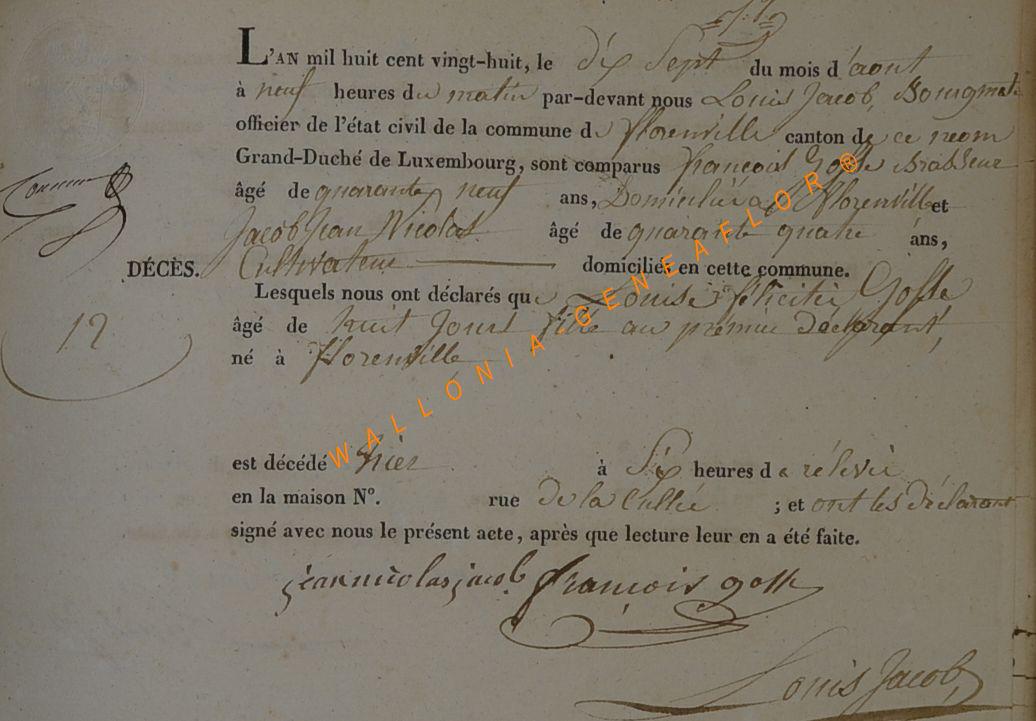 L'AN mil huit cent vingt-huit, le dix Sept du mois d'aout
à neuf heures du matin par-devant nous Louis Jacob, Bourgmst
officier de l'état civil de la commune de florenville canton de ce nom
Grand-Duché de Luxembourg, sont comparus françois Gosse Brasseur
âgé de quarante neuf ans, Domicilié a florenville et
Jacob Jean Nicolas âgé de quarante quatre ans,
DÉCÈS. Cultivateur domiciliés en cette commune.
Lesquels nous ont déclarés que Louise félicitée Gosse
12 âgé de huit Jours fille au prémier Déclarant,
né à florenville
est décédé hièr à Six heures de rélevée
en la maison N°. rue De la Cullée ; et ont les déclarant
signé avec nous le présent acte, après que lecture leur en a été faite.
jean nicolas jacob françois gosse
Louis Jacob,
WALLONIA-GENEAFLOR®